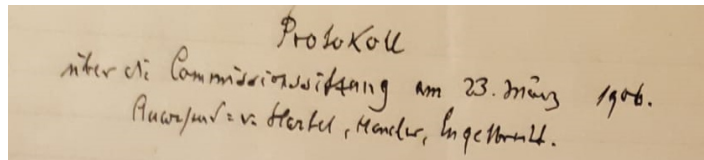 Protokoll
über die Commissionssitzung am 23. März 1906.
Anwesend = v. Hartel, Menclur, Engelbrecht.